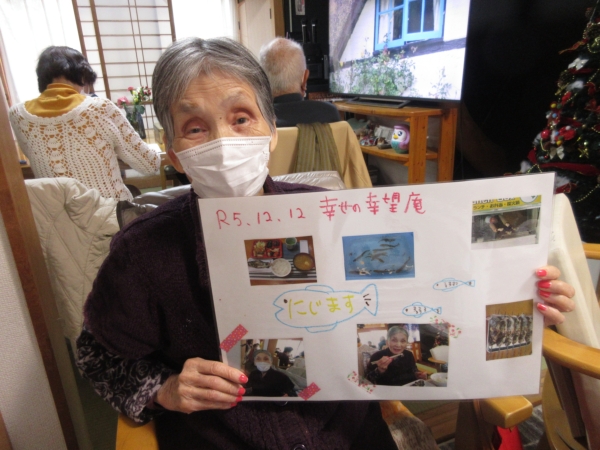 R5.12.12 幸せの幸望庵
にじます